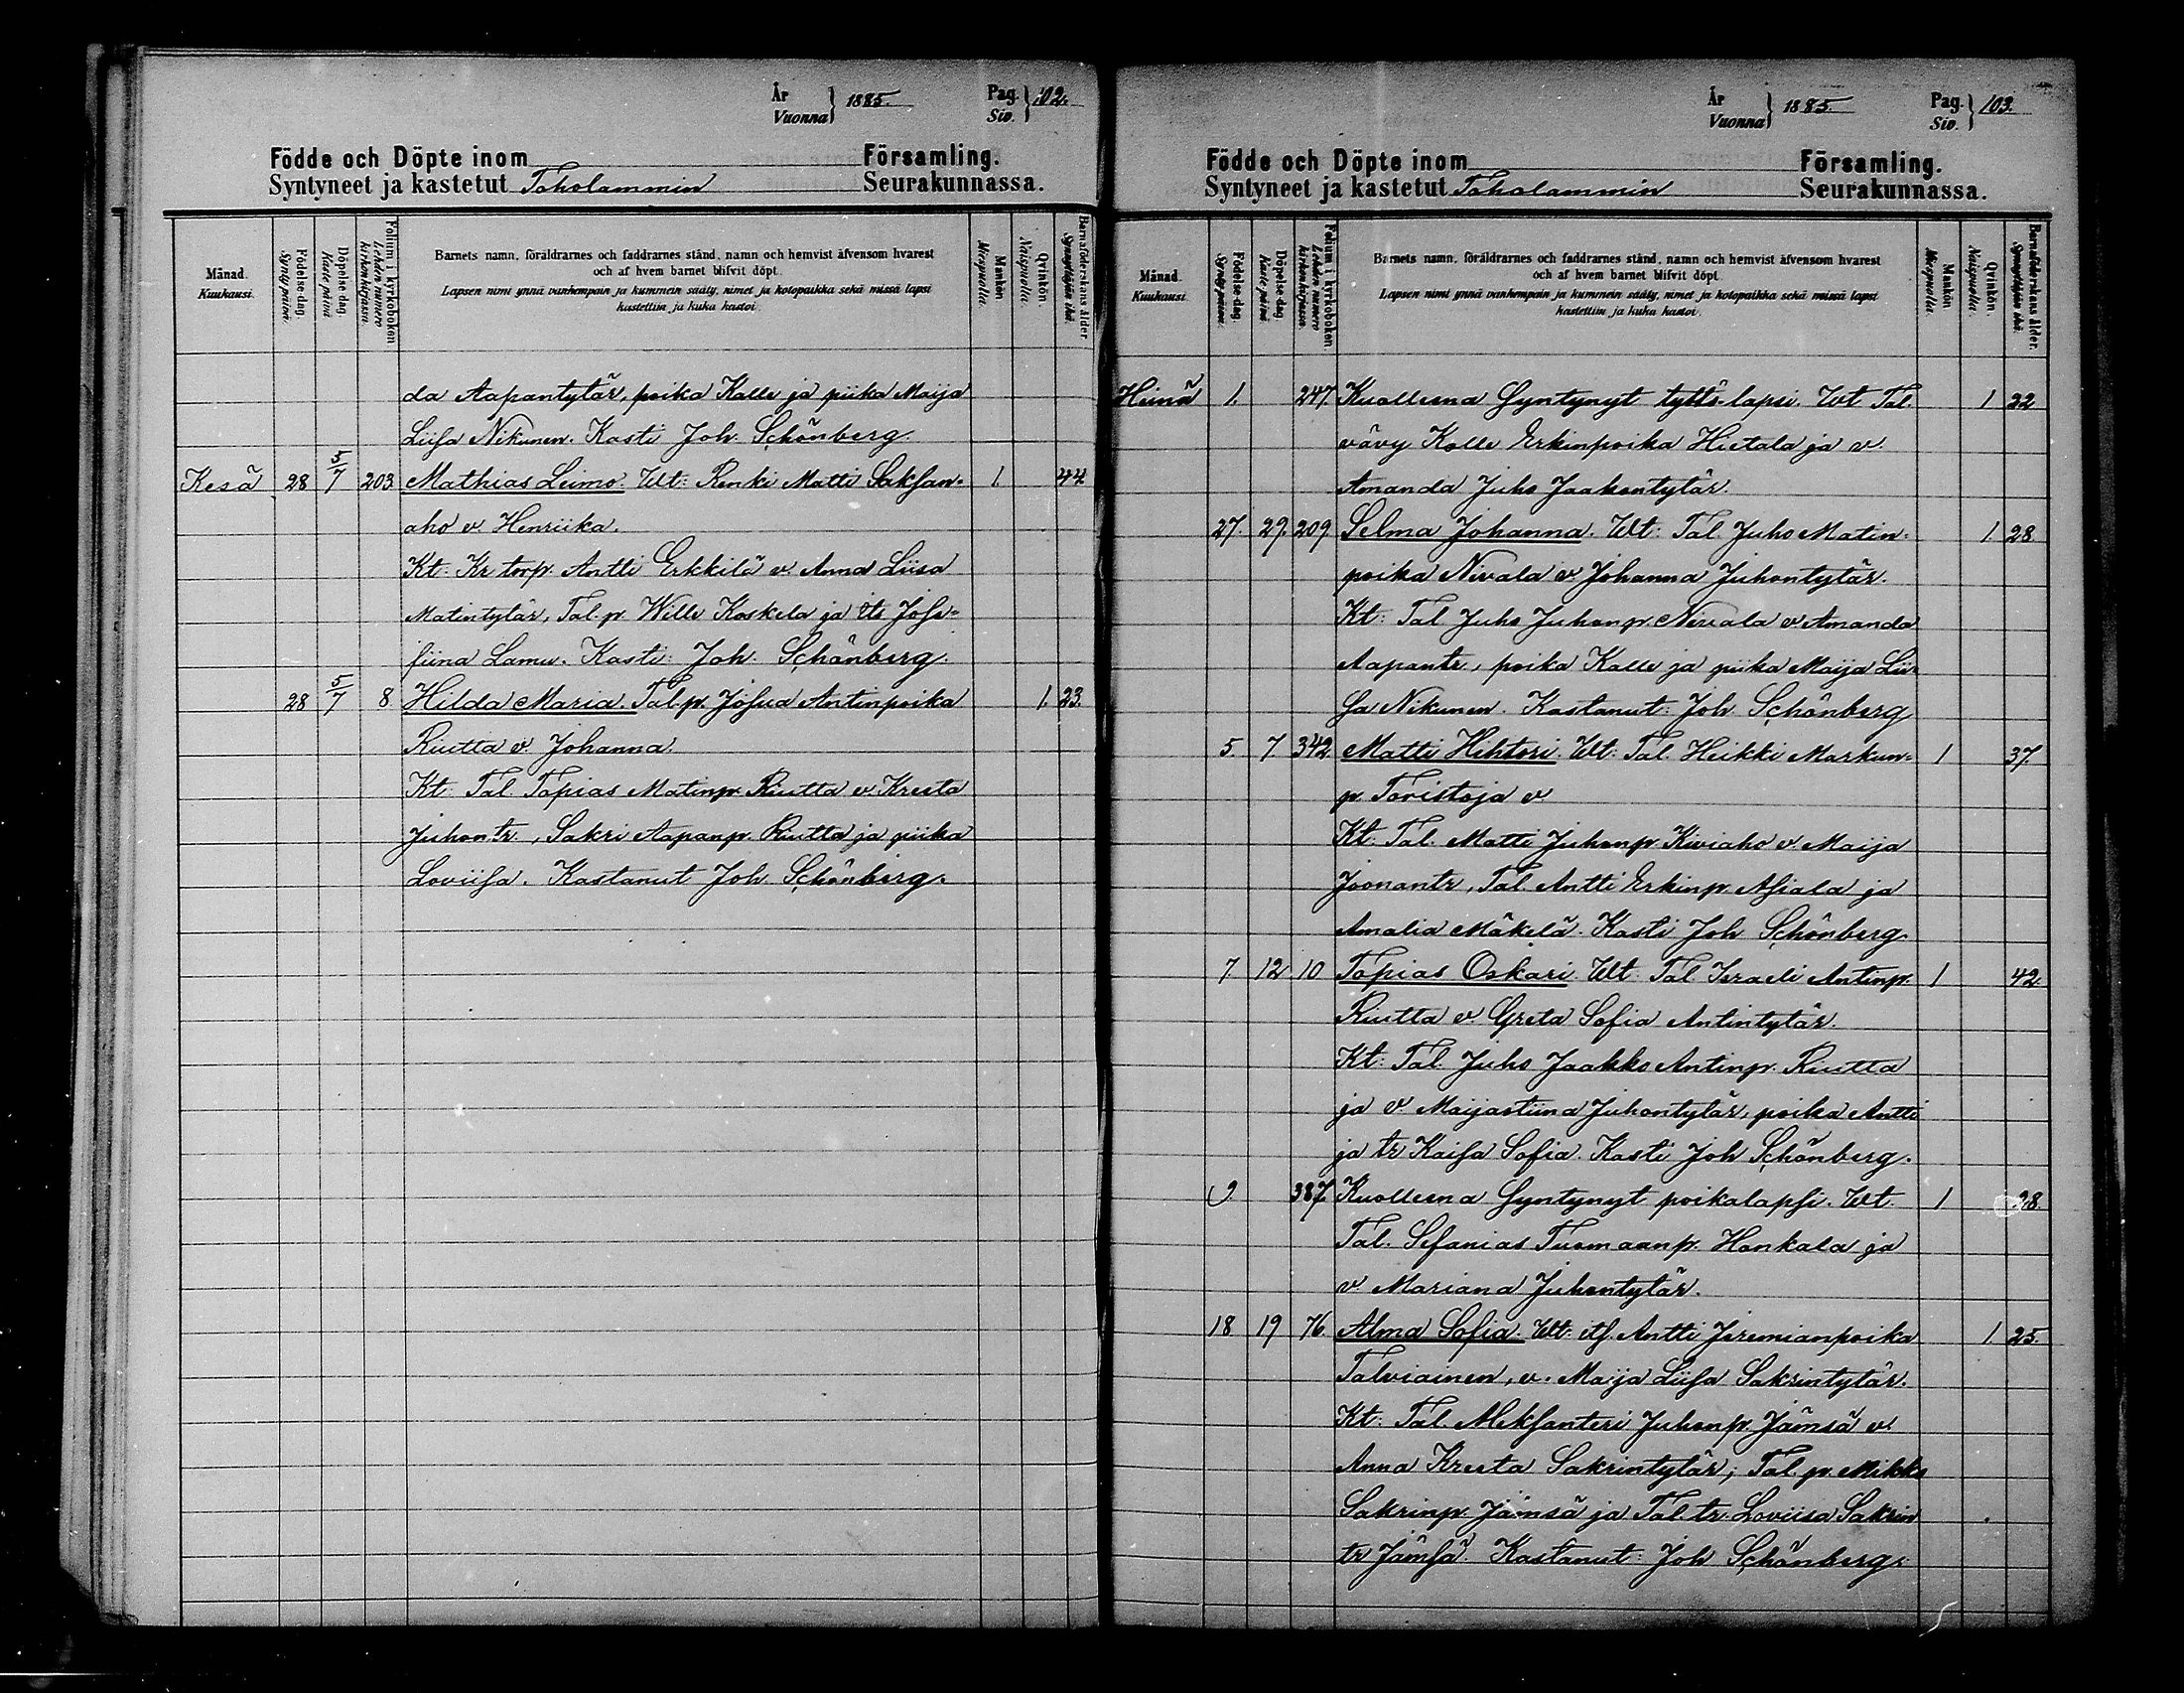 År
Vuonna } 1885. Pag.
Siv. } 102.
Födde och Döpte inom Församling.
Syntyneet ja kastetut Toholammin Seurakunnassa.
Månad.
Kuukausi.
Födelse-dag.
Synty päivä.
Döpelse-dag.
Kaste päivä
Folium i kyrkoboken
Lehden numero
kirkonkirjassa.
Barnets namn, föräldrarnes och faddrarnes stånd, namn och hemvist äfvensom hvarest
och af hvem barnet blifvit döpt.
Lapsen nimi ynnä vanhempain ja kummein sääty, nimet ja kotopaikka sekä missä lapsi
kastettiin ja kuka kastoi.
Mankön
Miespuolia.
Qvinkön.
Naispuolia.
Barnaföderskans ålder
Synnyttäjän ikä.
da Aapantytär, poika Kalle ja piika Maija
Liisa Nikunen. Kasti Joh. Schönberg.
Kesä 28 5/7 203 Mathias Leimo. Wt: Renki Matti Saksan= 1. 44
aho v. Henriika.
Kt: Kr torp. Antti Erkkilä v. Anna Liisa
Matintytär, Tal. p. Wille Koskela ja its Jose=
fiina Lamu. Kasti: Joh. Schönberg.
28 5/7 8. Hilda Maria. Tal. p. Josua Antinpoika 1. 23.
Riutta v. Johanna.
Kt: Tal. Tapias Matinp. Riutta v. Kreeta
Juhontr., Sakri Aapanp. Riutta ja piika
Loviisa. Kastanut Joh. Schönberg.
År
Vuonna } 1885. Pag.
Siv. } 103.
Födde och Döpte inom Församling.
Syntyneet ja kastetut Toholammin Seurakunnassa.
Månad.
Kuukausi.
Födelse-dag.
Synty päivä.
Döpelse-dag.
Kaste päivä
Folium i kyrkoboken.
Lehden numero
kirkon kirjassa.
Barnets namn, föräldrarnes och faddrarnes stånd, namn och hemvist äfvensom hvarest
och af hvem barnet blifvit döpt.
Lapsen nimi ynnä vanhempain ja kummein sääty, nimet ja kotopaikka sekä missä lapsi
kastettiin ja kuka kastoi.
Mankön
Miespuolia.
Qvinkön.
Naispuolia.
Barnaföderskans ålder.
Synnyttäjän ikä.
Heinä 1. 247 Kuolleena Syntynyt tyttö-lapsi. Wt Tal. 1 22
vävy Kalle Erkinpoika Hietala ja v.
Amanda Juho Jaakontytär.
27. 29. 209 Selma Johanna. Wt: Tal. Juho Matin= 1 28
poika Nivala v. Johanna Juhontytär.
Kt: Tal Juho Juhonp. Nivala v. Amanda
Aapantr., poika Kalle ja piika Maija Lii=
sa Nikunen. Kastanut: Joh. Schönberg
5. 7 342 Matti Hihtori. Wt: Tal. Heikki Markun= 1 37.
p. Toristoja v
Kt: Tal. Matti Juhonp. Kiviaho v. Maija
Joonantr, Tal. Antti Erkinp. Asiala ja
Amalia Mäkelä. Kasti Joh Schönberg.
7 12 10 Tapias Oskari. Wt: Tal Israeli Antinp. 1 42.
Riutta v. Greta Sofia Antintytär.
Kt: Tal. Juho Jaakko Antinp. Riutta
ja v. Maijastiina Juhontytär, poika Antti
ja tr Kaisa Sofia. Kasti Joh Schönberg.
9. 387 Kuolleena Syntynyt poikalapsi. Wt. 1 28.
Tal. Sefanias Tuomaanp. Honkala ja
v. Mariana Juhontytär.
18 19 76 Alma Sofia. Wt: its. Antti Jeremianpoika 1 25.
Talviainen, v. Maija Liisa Sakrintytär.
Kt: Tal. Aleksanteri Juhonp. Jämsä v.
Anna Kreeta Sakrintytär; Tal. p. Mikko
Sakrinp. Jämsä ja Tal. tr. Loviisa Sakrin
tr Jämsä. Kastanut: Joh Schönberg.